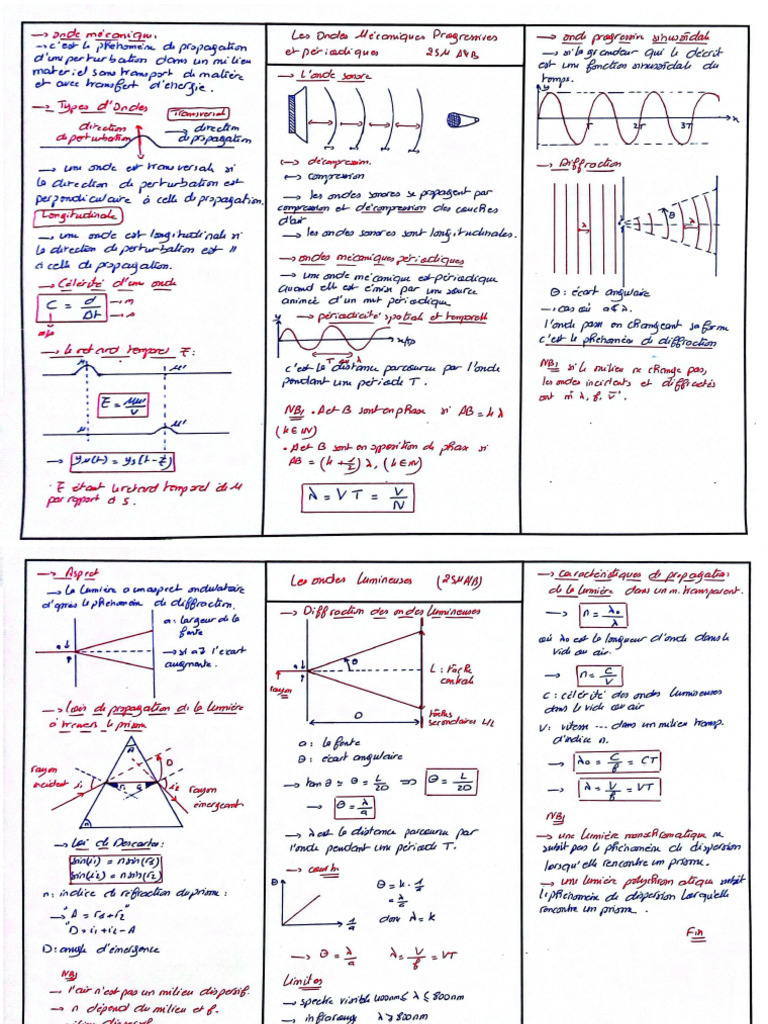 → onde mécanique.
→ c'est le phénomène de propagation
d'une perturbation dans un milieu
materiel sans transport de matière
et avec transfert d'énergie.
→ Types d'Ondes
Transversal
direction
de perturbation
→ direction
de propagation
→ une onde est transversale si
la direction de perturbation est
perpendiculaire à celle de propagation.
Longitudinale
→ une onde est longitudinale si
la direction de perturbation est //
à celle de propagation.
→ Célérité d'une onde
C = d/Δt → m → s
m/s
→ le retard temporel τ :
M M'
τ = MM'/V
M'
→ yM(t) = yS(t-τ)
· τ étant le retard temporel de M
par rapport à S.
Les Ondes Mécaniques Progressives
et périodiques 2SM A/B
→ L'onde sonore
↔ décompression.
↔ compression
→ les ondes sonores se propagent par
compression et décompression des couches
d'air
→ les ondes sonores sont longitudinales.
→ ondes mécaniques périodiques
→ une onde mécanique est périodique
quand elle est émise par une source
animée d'un mvt périodique
→ périodicité spatiale et temporelle
y
T ou λ
c'est la distance parcourue par l'onde
pendant une période T.
NB/ · A et B sont en phase si AB = kλ
(k∈IN)
· A et B sont en opposition de phase si
AB = (k + 1/2) λ, (k∈IN)
λ = VT = V/N
→ onde progressive sinusoïdale
→ si la grandeur qui le décrit
est une fonction sinusoïdale du
temps.
y T 2T 3T x
→ Diffraction
λ θ λ
θ : écart angulaire
→ cas où a≤λ.
l'onde passe en changeant sa forme
c'est le phénomène de diffraction
NB/ si le milieu ne change pas,
les ondes incidents et diffractés
ont m̂ λ, f, v.
→ Aspect
→ la lumière a un aspect ondulatoire
d'après le phénomène de diffraction.
a : largeur de la
fente
→ si a↗ l'écart
augmente.
→ Lois de propagation de la lumière
à travers le prisme
A D
rayon
incident i1 r1 r2 i2 rayon
émergeant
n
→ Loi de Descartes :
sin(i1) = n sin(r1)
sin(i2) = n sin(r2)
n : indice de réfraction du prisme :
→ A = r1+r2
D = i1+i2-A
D : angle d'émergence
NB/
→ l'air n'est pas un milieu dispersif.
→ n dépend du milieu et f.
Les ondes Lumineuses (2SM A/B)
→ Diffraction des ondes lumineuses
a θ L : tâche
centrale
rayon
D tâches
secondaires L/2
a : la fente
θ : écart angulaire
→ tan θ ≃ θ = L/2D ⇒ θ = L/2D
→ θ = λ/a
→ λ est la distance parcourue par
l'onde pendant une période T.
→ courbe
θ 1/a
θ = k · 1/a
= λ/a
donc λ = k
→ θ = λ/a λ = V/f = VT
Limites
→ spectre visible 400nm ≤ λ ≤ 800nm
→ infrarouge λ ≥ 800nm
→ caractéristiques de propagation
de la lumière dans un m. transparent.
→ n = λ0/λ
où λ0 est la longueur d'onde dans le
vide ou air.
→ n = C/V
C : célérité des ondes lumineuses
dans le vide ou air
V : vitesse --- dans un milieu transp.
d'indice n.
→ λ0 = C/f = CT
→ λ = V/f = VT
NB/
→ une lumière monochromatique ne
subit pas le phénomène de dispersion
lorsqu'elle rencontre un prisme.
→ une lumière polychromatique subit
le phénomène de dispersion lorsqu'elle
rencontre un prisme.
Fin